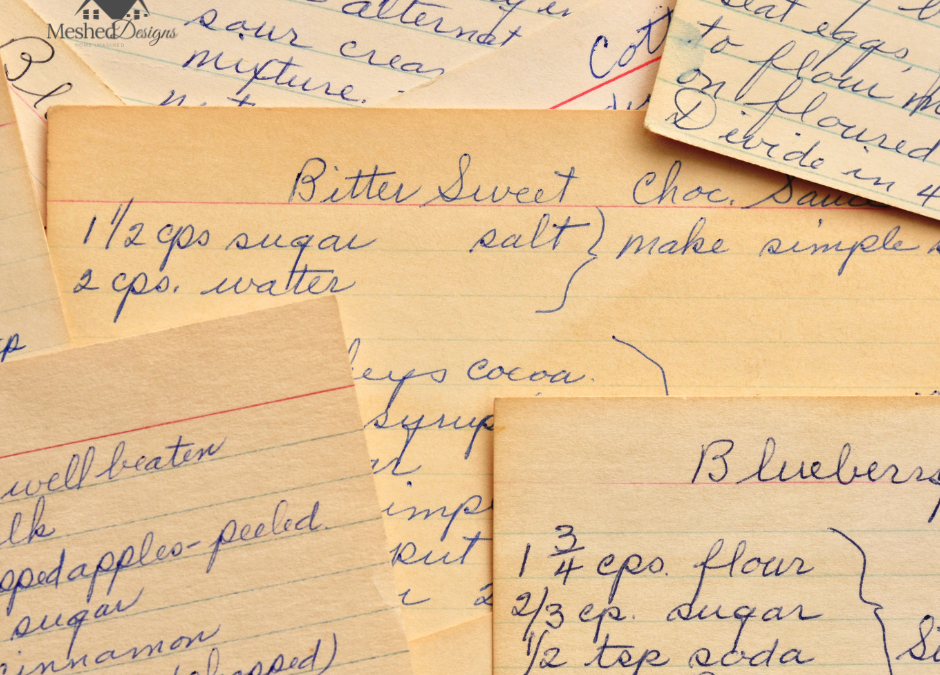 Meshed Designs
HOME INSPIRED
alternat
sour crea
mixture.
Cott
Beat eggs,
to flour m
on floured
Divide in 4
Bitter Sweet Choc. Sauc
1 1/2 cps sugar salt } make simple s
2 cps. watter
heys cocoa.
syrup
simp
put
2
well beaten
lk
pped apples - peeled.
sugar
cinnamon
(chopped)
Blueberry
1 3/4 cps. flour
2/3 cp. sugar
1/2 tsp soda
St